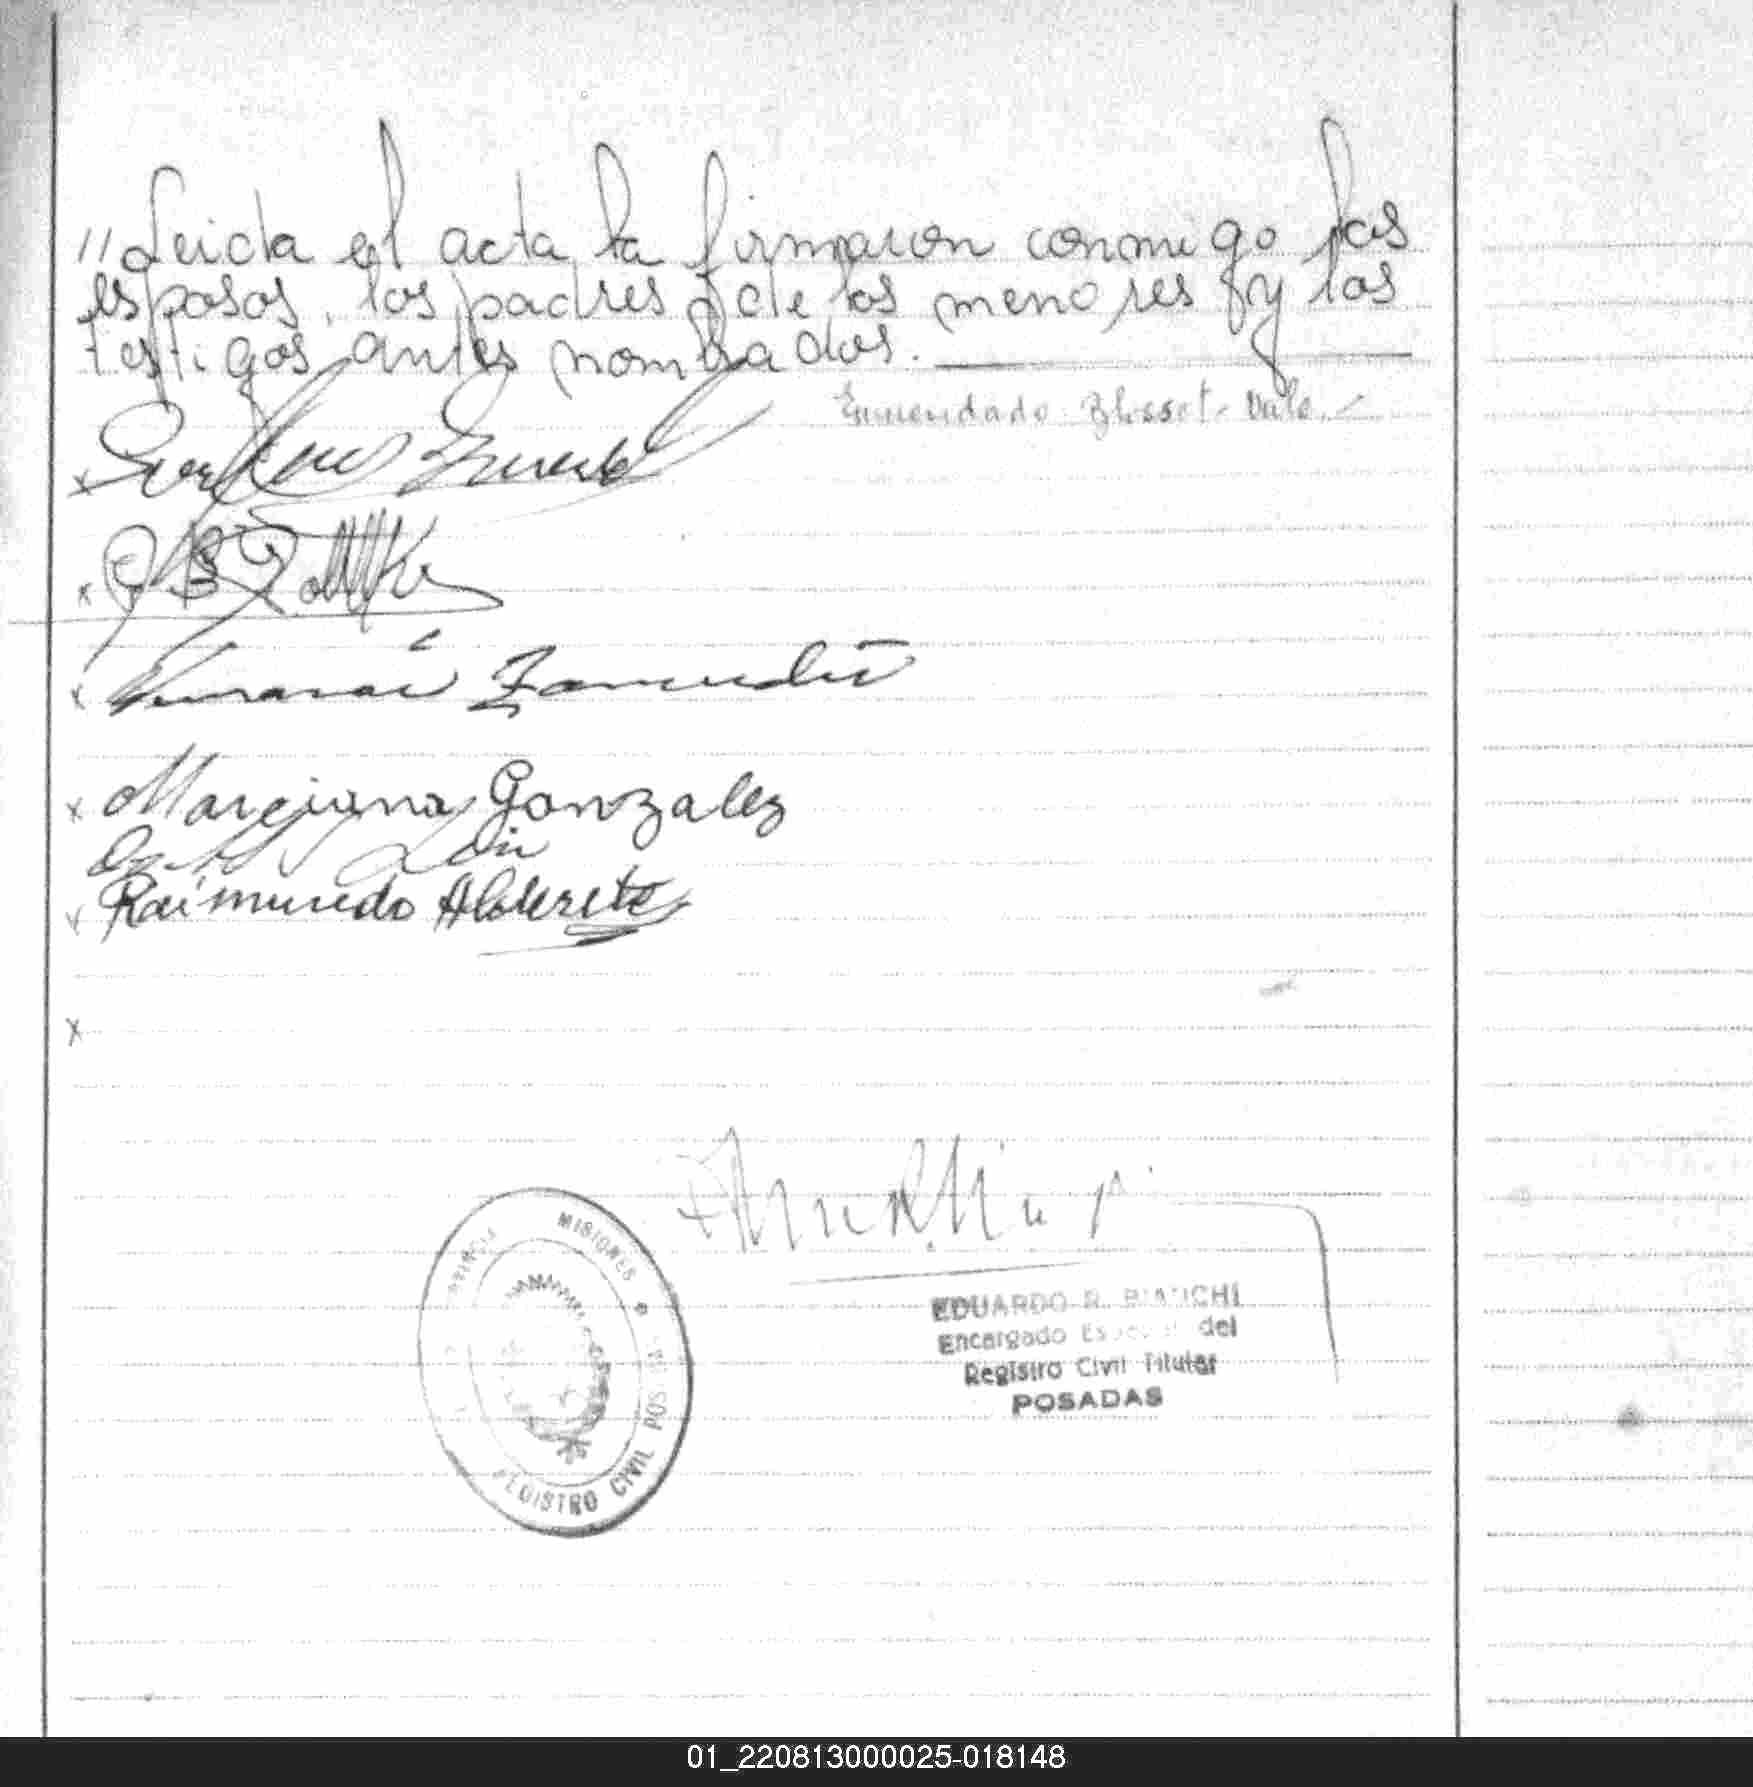 "Leida el acta, la firmaron conmigo los
esposos, los padres de los menores y los
testigos antes nombrados.
Enmendado: Blosset. Vale.
x
x
x
x Marciana Gonzalez
Raimundo Alderete
x
PROVINCIA MISIONES
REGISTRO CIVIL POSADAS
EDUARDO R. BIANCHI
Encargado Especial del
Registro Civil Titular
POSADAS
01_220813000025-018148